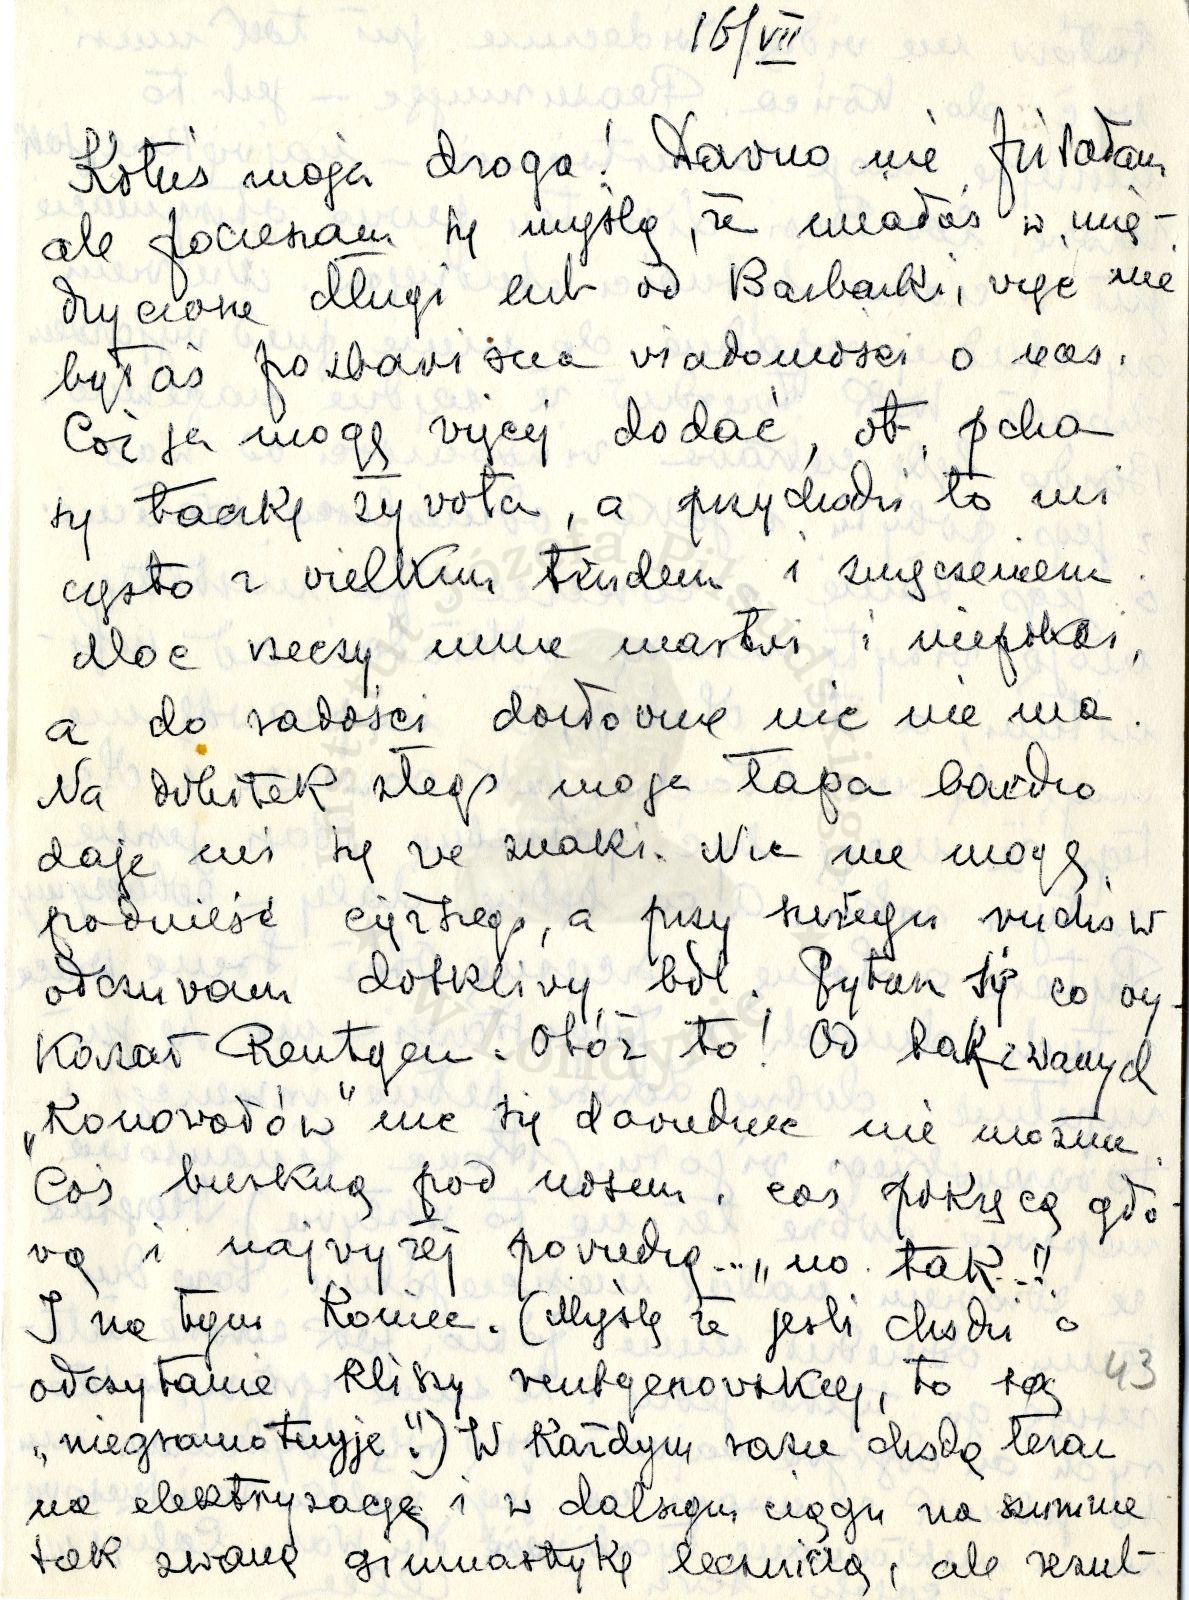 16/VII
Kotuś moja droga! Dawno nie pisałam
ale pocieszam się myślą, że miałaś w mię-
dzyczasie długi list od Barbarki, więc nie
byłaś pozbawiona wiadomości o nas.
Cóż ja mogę więcej dodać, ot, pcha
się taczkę żywota, a przychodzi to mi
często z wielkim trudem i zmęczeniem.
Moc rzeczy mnie martwi i niepokoi,
a do radości dosłownie nic nie ma.
Na dobitek złego moja łapa bardzo
daje mi się we znaki. Nic nie mogę
podnieść cięższego, a przy szeregu ruchów
odczuwam dotkliwy ból. Pytasz się co wy-
kazał Rentgen. Otóż to! Od tak zwanych
„Konowałów" nic się dowiedzieć nie można.
Coś burkną pod nosem, coś pokręcą gło-
wą i najwyżej powiedzą... „no tak..!"
I na tym koniec. (Myślę że jeśli chodzi o
odczytanie kliszy rentgenowskiej, to są
„niegramotnyje"!) W każdym razie chodzę teraz
na elektryzację i w dalszym ciągu na
tak zwaną gimnastykę leczniczą, ale rezul-
43
Instytut Józefa Piłsudskiego
w Londynie